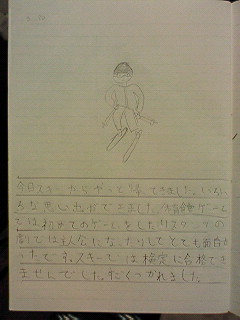 今日スキーからやっと帰ってきました。いろい
ろな思い出ができました。
では初めてのゲームをしたりスタンツの
劇では主人公になったりしてとても面白か
ったです。スキーでは検定に合格でき
ませんでした。だいぶつかれました。